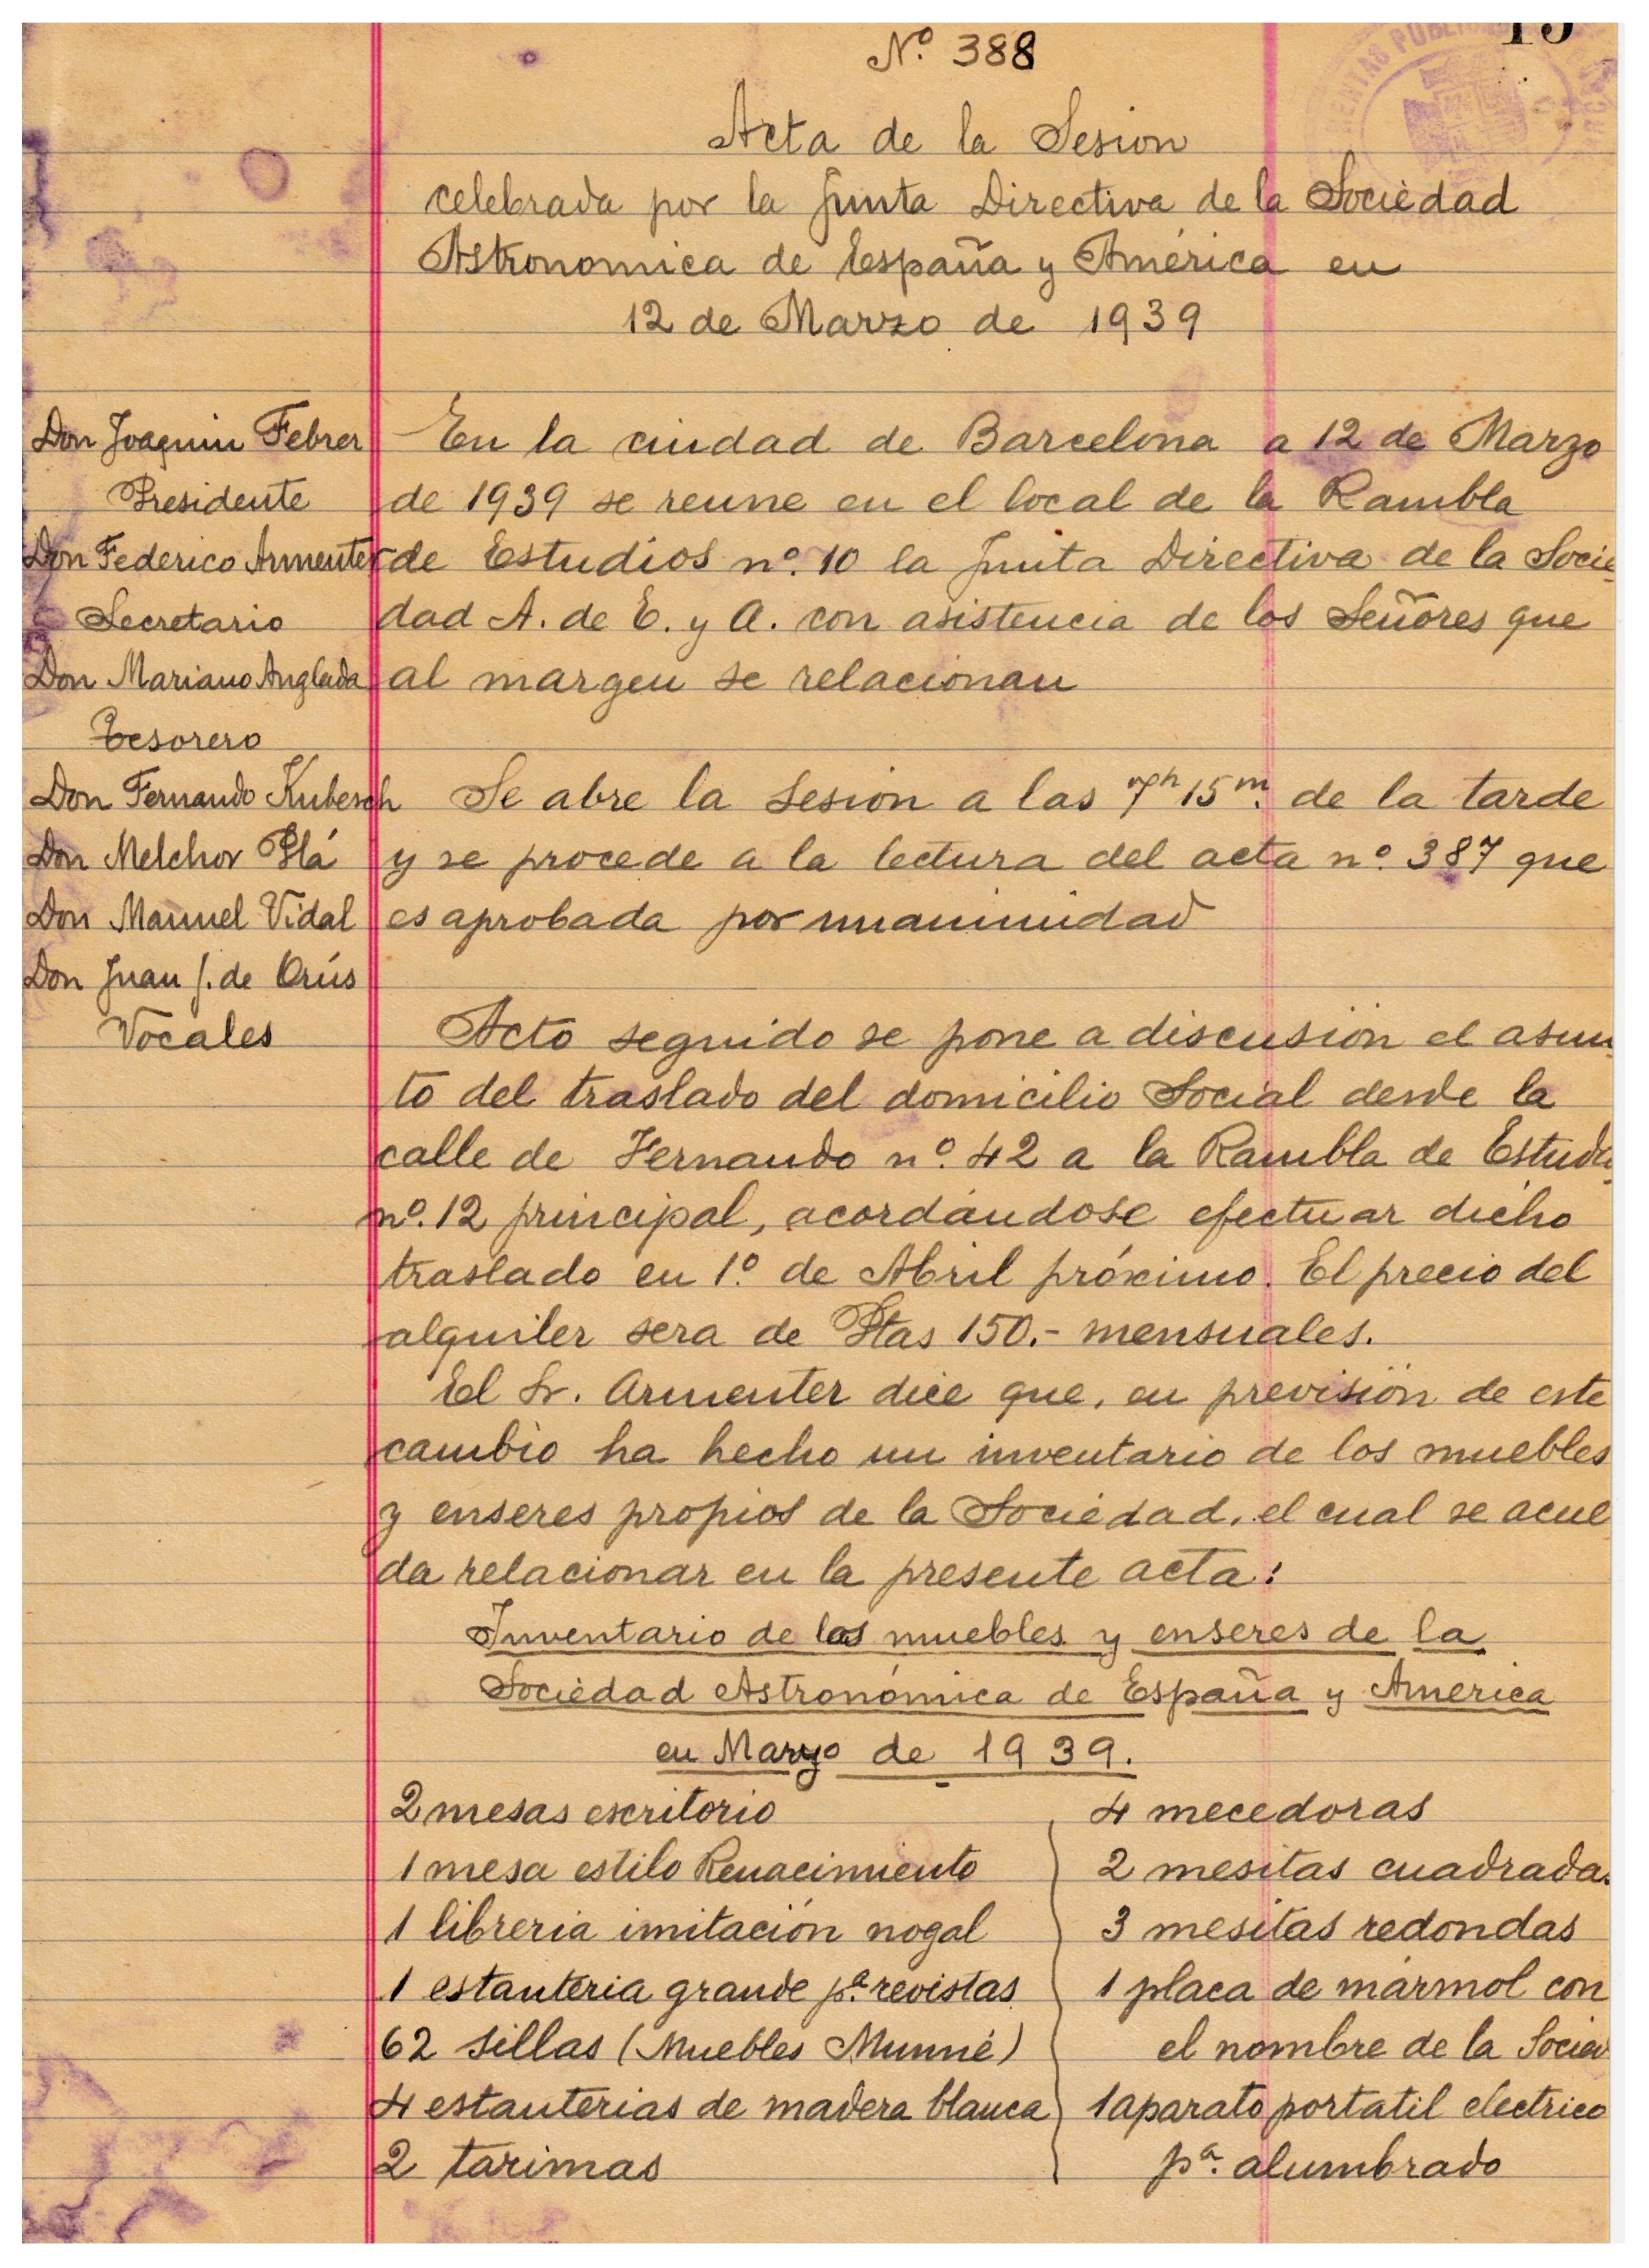 15
Nº. 388
Acta de la Sesion
celebrada por la Junta Directiva de la Sociedad
Astronomica de España y América en
12 de Marzo de 1939
Don Joaquin Febrer
Presidente
Don Federico Armenter
Secretario
Don Mariano Anglada
Tesorero
Don Fernando Kubesch
Don Melchor Plá
Don Manuel Vidal
Don Juan J. de Orús
Vocales
En la ciudad de Barcelona a 12 de Marzo
de 1939 se reune en el local de la Rambla
de Estudios nº. 10 la Junta Directiva de la Socie
dad A. de E. y A. con asistencia de los Señores que
al margen se relacionan
Se abre la sesion a las 7h 15m. de la tarde
y se procede a la lectura del acta nº 387 que
es aprobada por unanimidad
Acto seguido se pone a discusión el asun
to del traslado del domicilio Social desde la
calle de Fernando nº. 42 a la Rambla de Estudi
nº. 12 principal, acordándose efectuar dicho
traslado en 1º. de Abril próximo. El precio del
alquiler sera de Ptas 150.- mensuales.
El Sr. Armenter dice que, en previsión de este
cambio ha hecho un inventario de los muebles
y enseres propios de la Sociedad, el cual se acue
da relacionar en la presente acta:
Inventario de los muebles y enseres de la
Sociedad Astronómica de España y America
en Marzo de 1939.
2 mesas escritorio
1 mesa estilo Renacimiento
1 libreria imitación nogal
1 estanteria grande pª. revistas
62 sillas (Muebles Munné)
4 estanterias de madera blanca
2 tarimas
4 mecedoras
2 mesitas cuadradas
3 mesitas redondas
1 placa de mármol con
el nombre de la Socied
1 aparato portatil electrico
pª. alumbrado